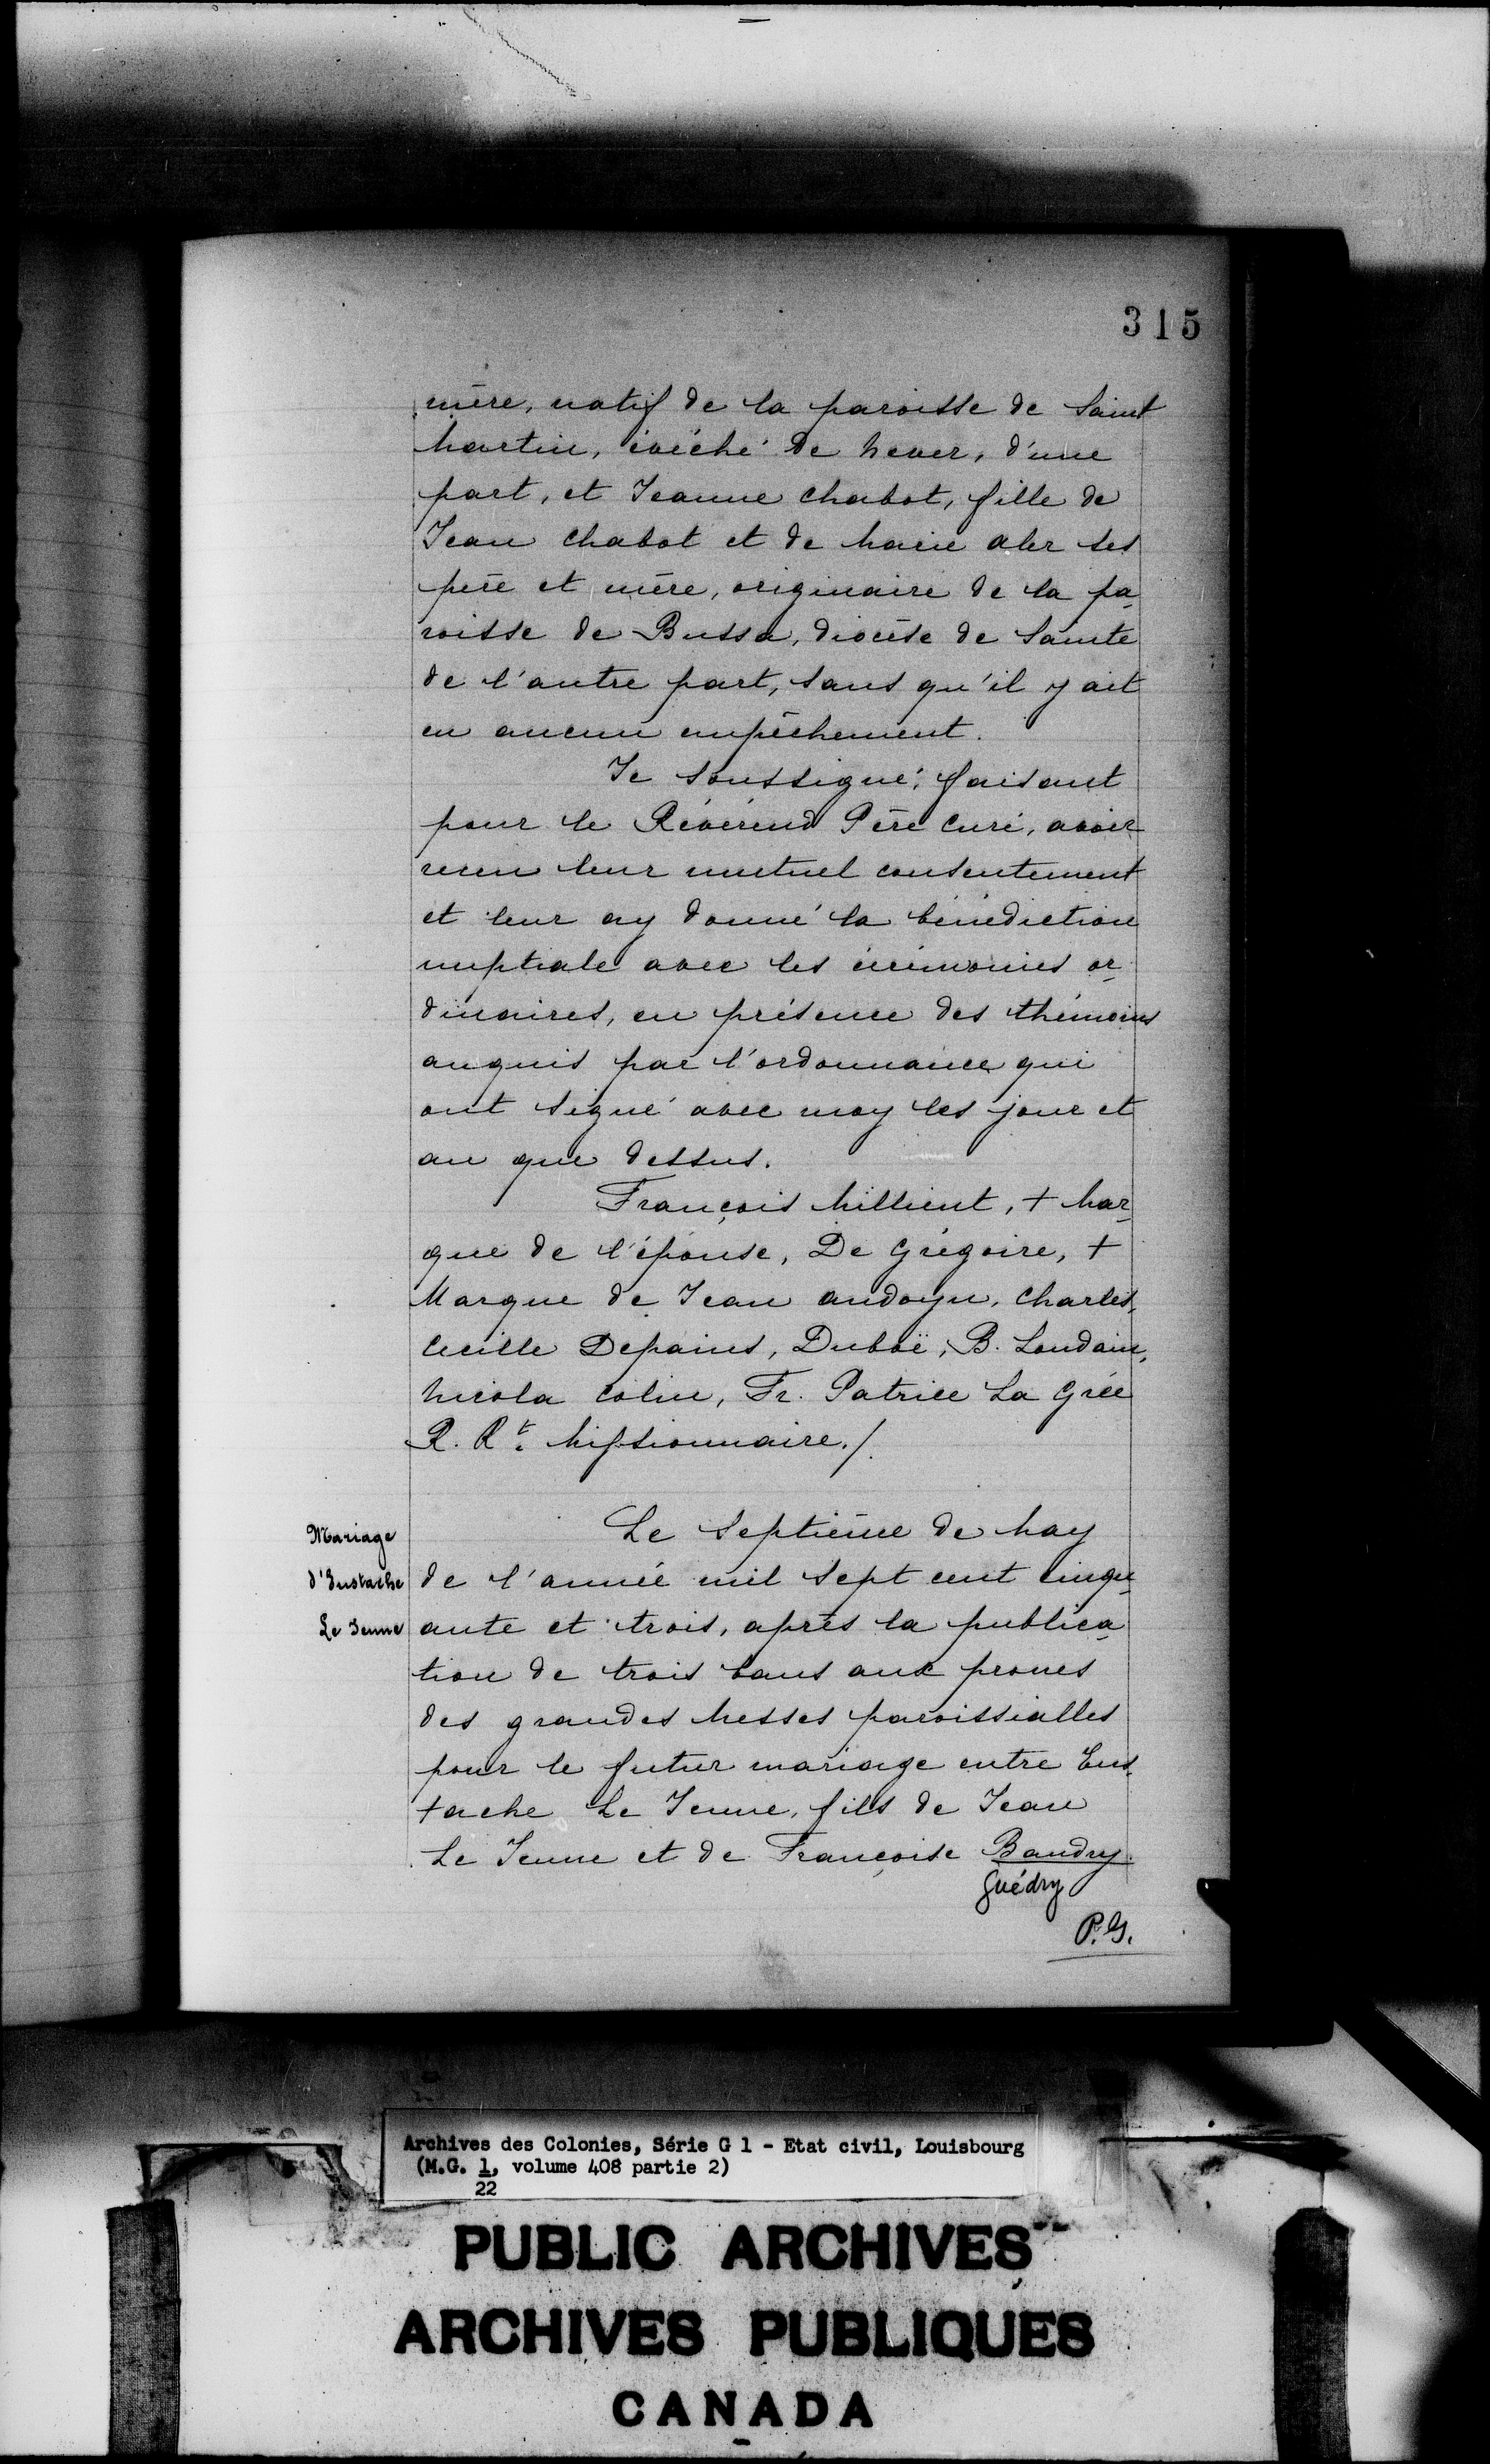 315
mère, natif de la paroisse de Saint
Martin, évêché de Never, d'une
part, et Jeanne Chabot, fille de
Jean Chabot et de Marie aler ses
père et mère, originaire de la pa-
roisse de Bussa, diocèse de Sainte
de l'autre part, sans qu'il y ait
eu aucun empêchement.
Je soussigné, faisant
pour le Révérend Père Curé, avoir
receu leur mutuel consentement
et leur ay donné la bénédiction
nuptiale avec les cérémonies or-
dinaires, en présence des thémoins
anquis par l'ordonnance qui
ont signé avec moy les jour et
an que dessus.
François Millient, + Mar-
que de l'épouse, De Grégoire, +
Marque de Jean andoyn, Charles,
Cecille Depains, Duboë, B. Loudain,
Nicola Colin, Fr. Patrice La Grée
R. Rt. Missionnaire./.
Mariage
d'Eustache
Le Jeune
Le Septième de May
de l'année mil sept cent cinqu-
ante et trois, après la publica-
tion de trois bans aux prones
des grandes Messes paroissialles
pour le futur mariage entre Eus-
tache Le Jeune, fils de Jean
Le Jeune et de Françoise Baudry
Guédry
P.G.
Archives des Colonies, Série G 1 - Etat civil, Louisbourg
(M.G. 1, volume 408 partie 2)
22
PUBLIC ARCHIVES
ARCHIVES PUBLIQUES
CANADA